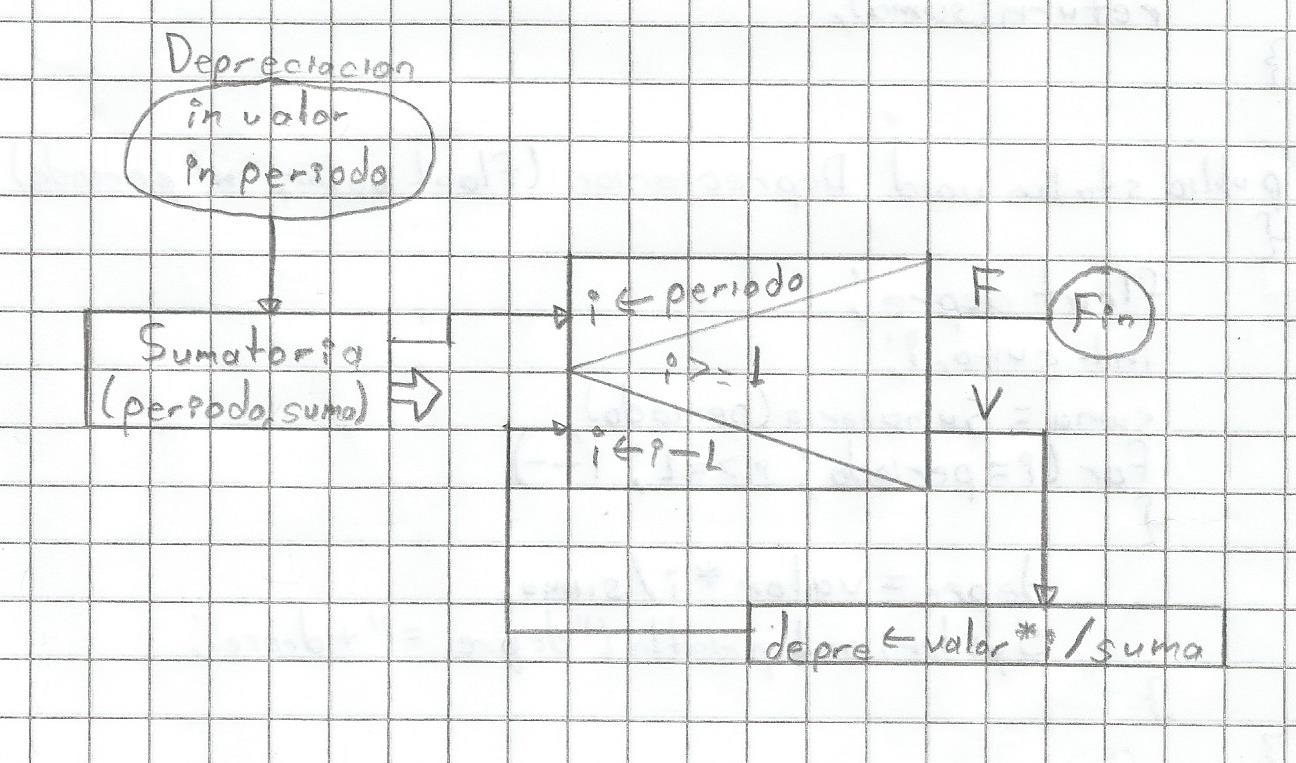 Depreciacion
in valor
in periodo
Sumatoria
(periodo, suma)
i ← periodo
i >= 1
i ← i - 1
F
Fin
V
depre ← valor * i / suma